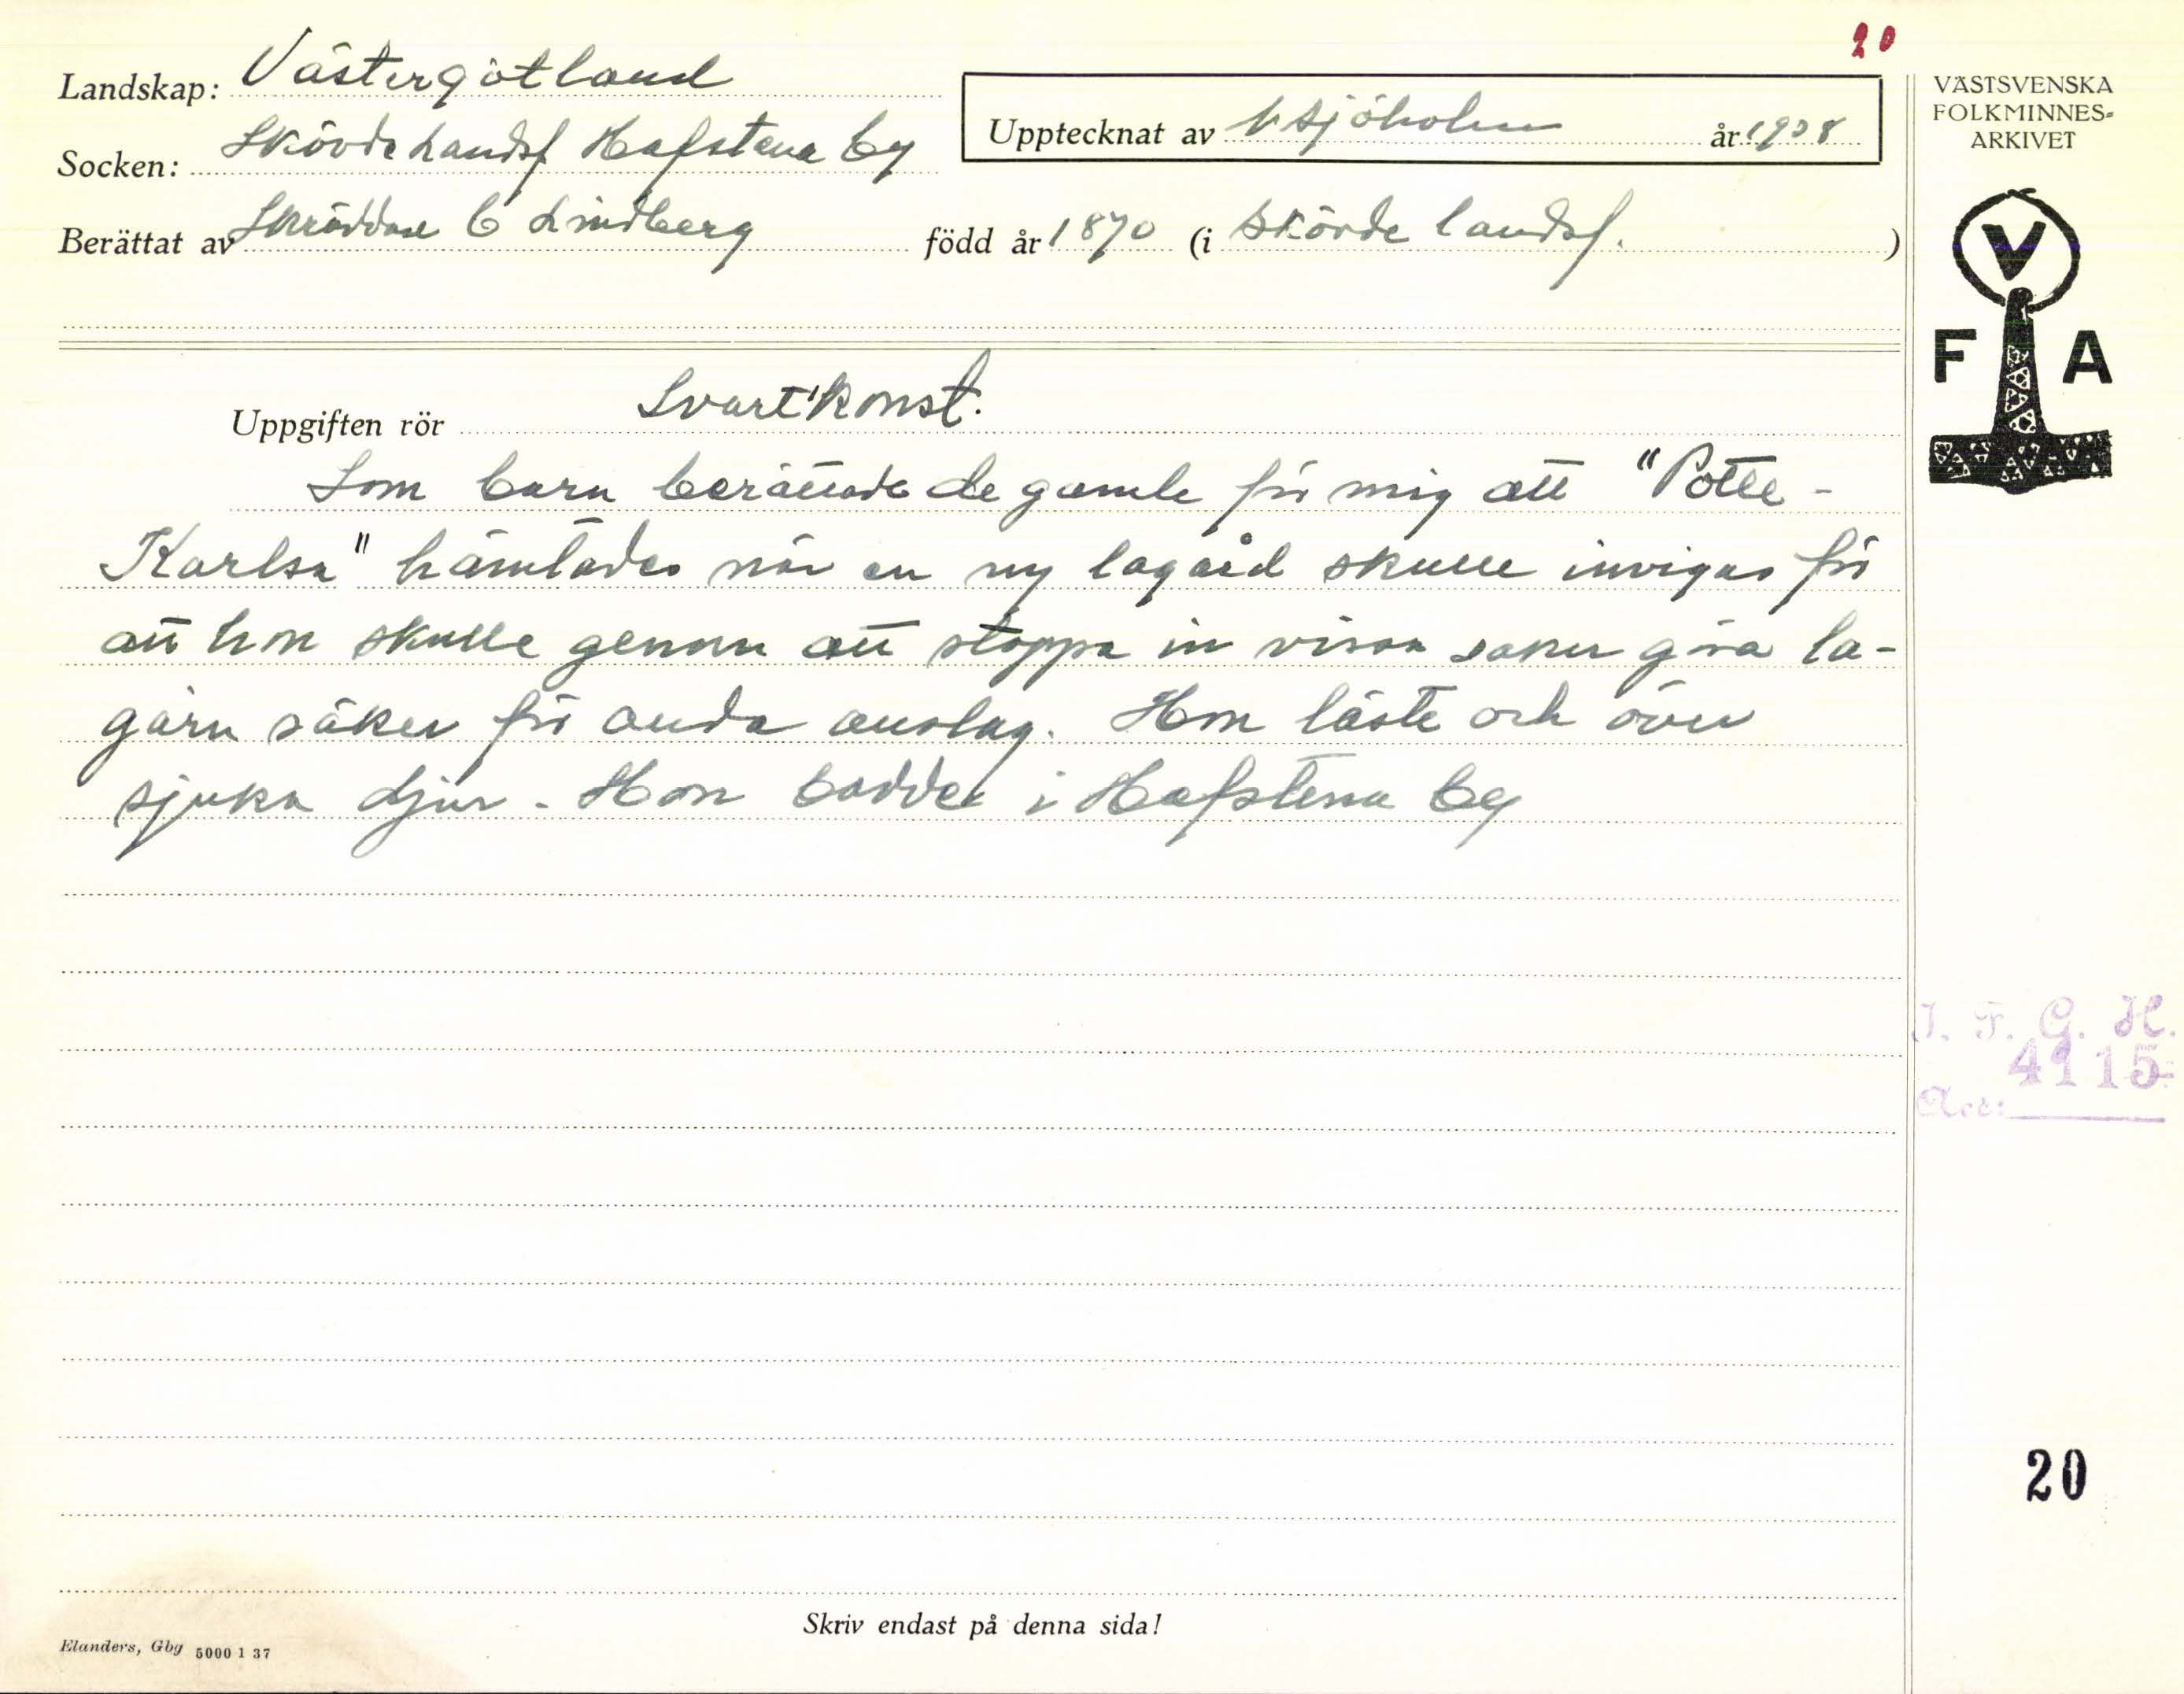 20
Landskap: Västergötland
Socken: Skövde landsf Hafstena by
Upptecknat av Sjöholm år 1938
Berättat av Skräddare C Lindberg född år 1870 (i Skövde landsf. )
Uppgiften rör Svartkonst.
Som barn berättade de gamle för mig att "Potte-
Karlsa" hämtades när en ny lagård skulle invigas för
att hon skulle genom att stoppa in vissa saker göra la-
gårn säker för onda anslag. Hon läste och över
sjuka djur. Hon bodde i Hafstena by
Skriv endast på denna sida!
Elanders, Gbg 5000 1 37
VÄSTSVENSKA
FOLKMINNES=
ARKIVET
V
F A
I. F. G. H.
4115
Acc:
20